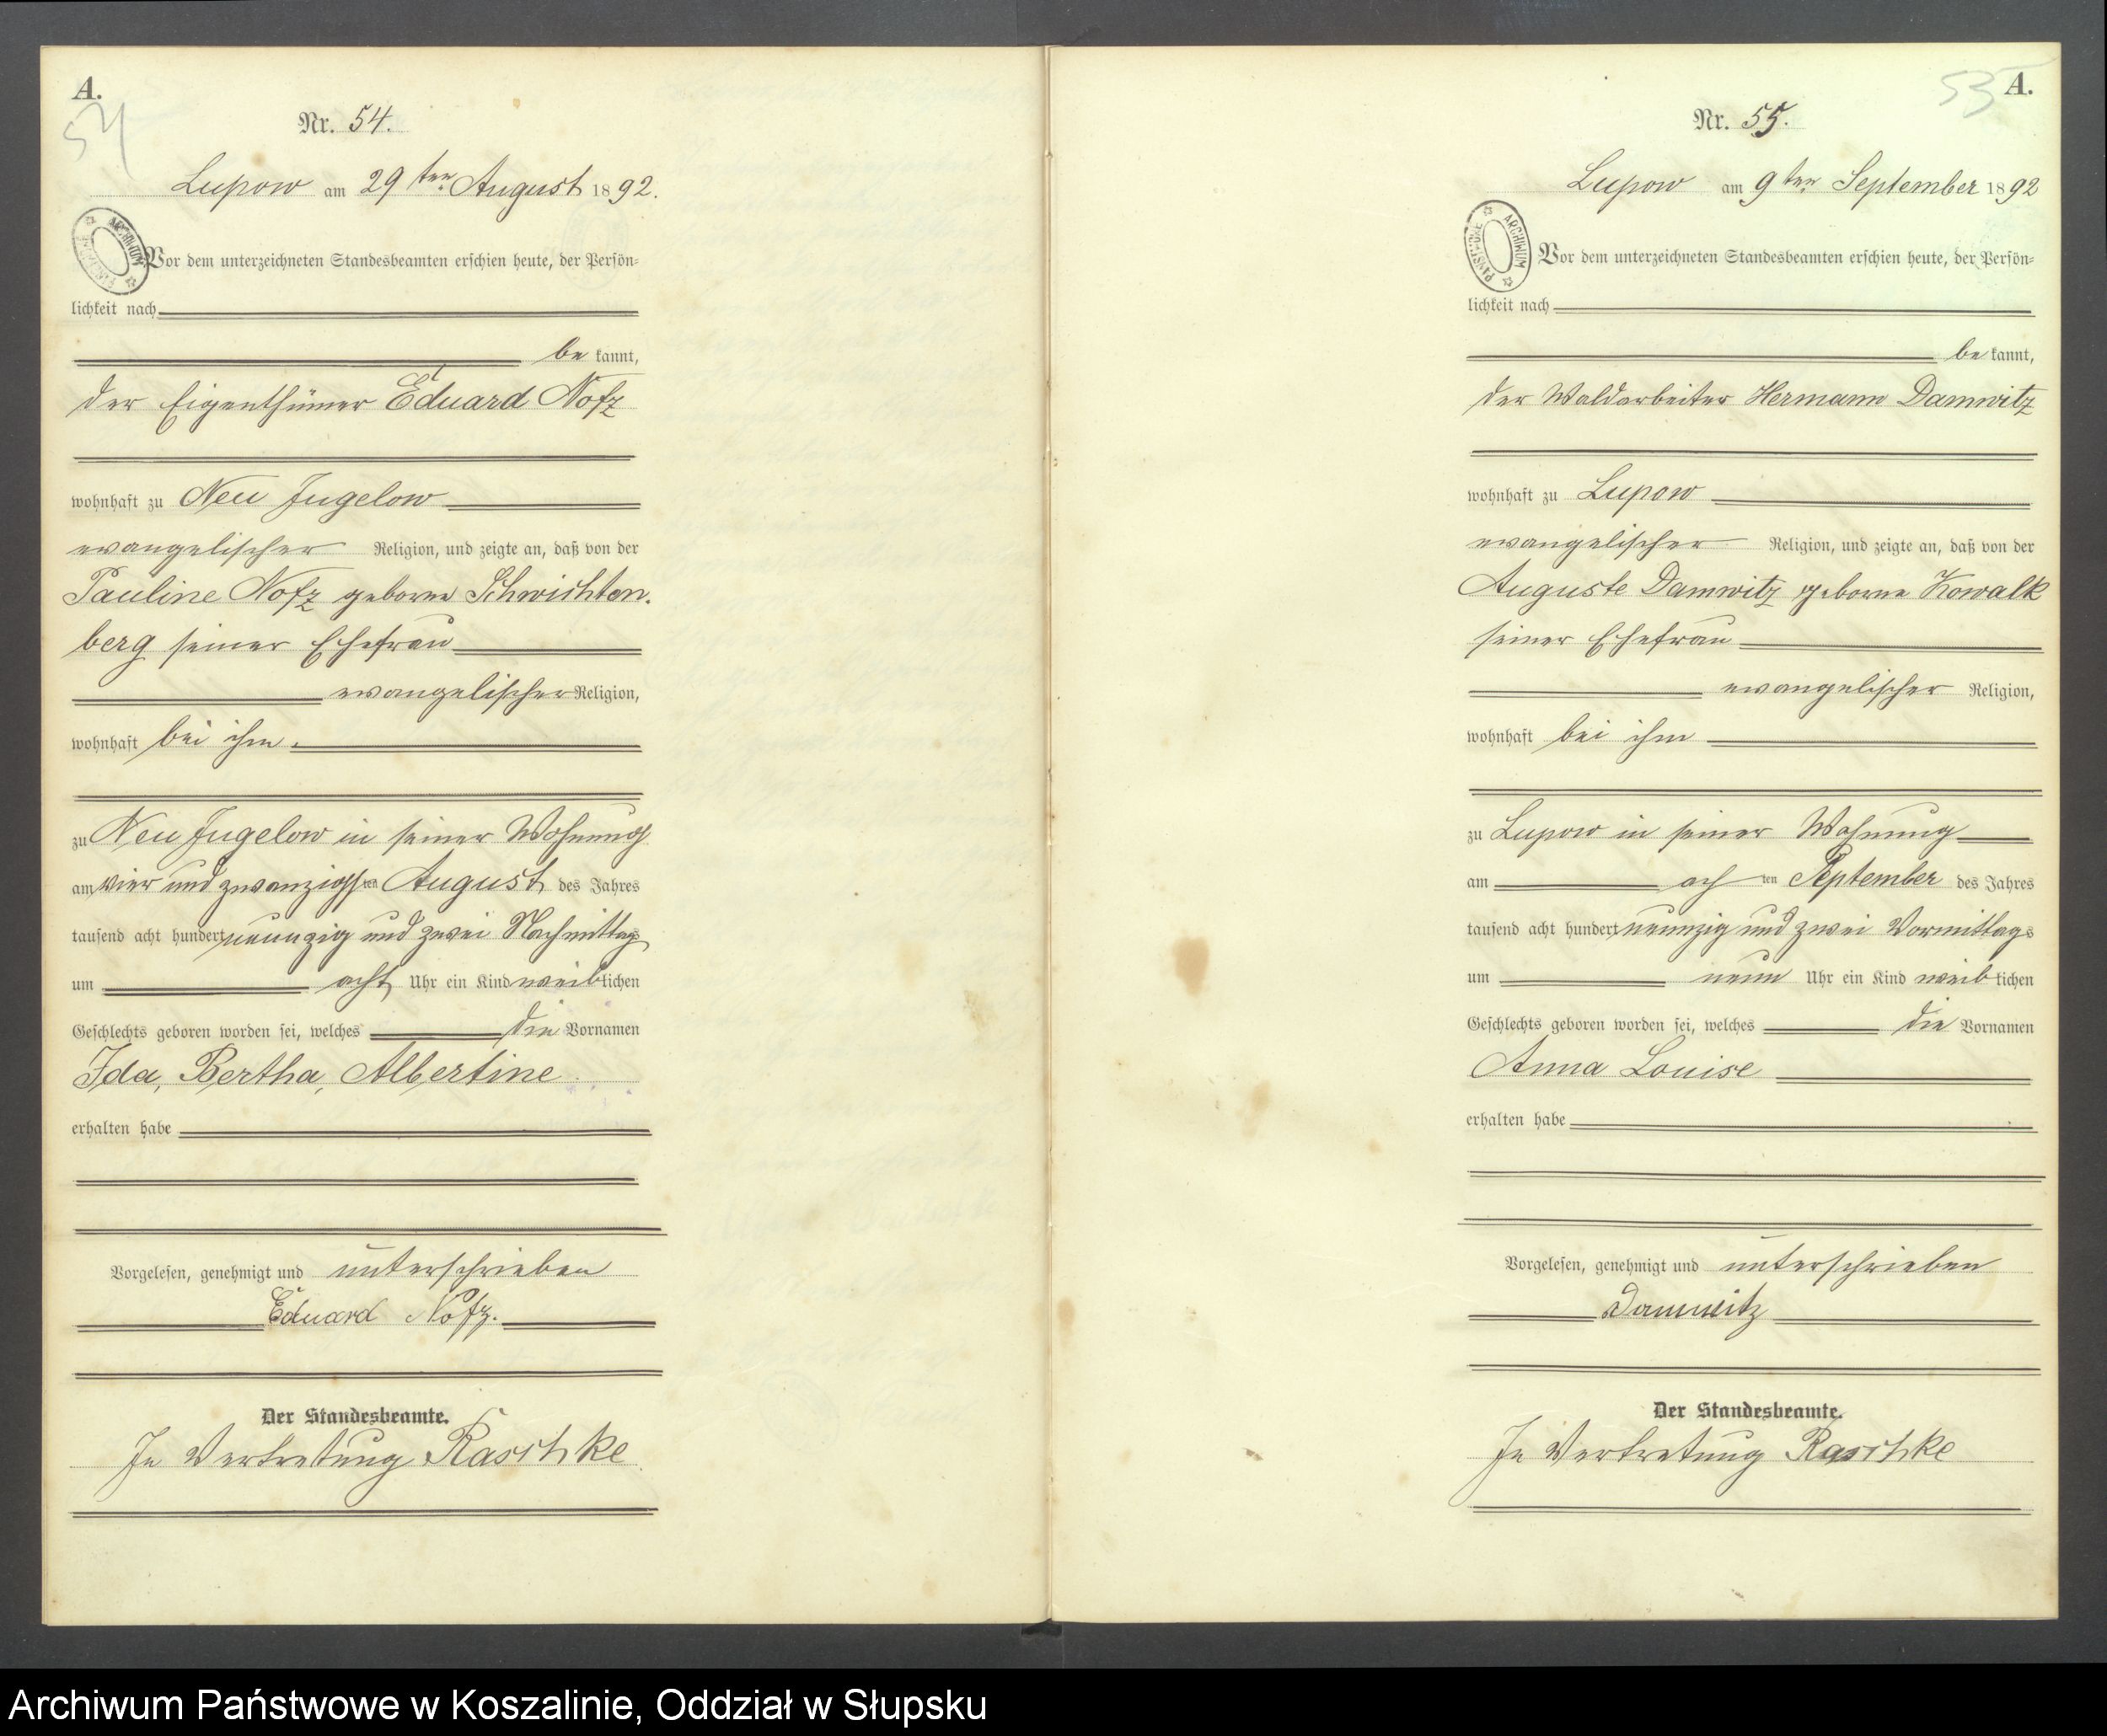 A.
54
Nr. 54.
Lupow am 29ten August 1892.
ARCHIWUM PAŃSTWOWE
Vor dem unterzeichneten Standesbeamten erschien heute, der Persön-
lichkeit nach
bekannt,
der Eigenthümer Eduard Nofz
wohnhaft zu Neu Jugelow
evangelischer Religion, und zeigte an, daß von der
Pauline Nofz geborne Schwichten-
berg seiner Ehefrau
evangelischer Religion,
wohnhaft bei ihm.
zu Neu Jugelow in seiner Wohnung
am vier und zwanzigsten August des Jahres
tausend acht hundert neunzig und zwei Nachmittags
um acht Uhr ein Kind weiblichen
Geschlechts geboren worden sei, welches die Vornamen
Ida, Bertha, Albertine
erhalten habe
Vorgelesen, genehmigt und unterschrieben
Eduard Nofz.
Der Standesbeamte.
In Vertretung Raschke
A.
55
Nr. 55.
Lupow am 9ten September 1892
ARCHIWUM PAŃSTWOWE
Vor dem unterzeichneten Standesbeamten erschien heute, der Persön-
lichkeit nach
bekannt,
der Waldarbeiter Hermann Damwitz
wohnhaft zu Lupow
evangelischer Religion, und zeigte an, daß von der
Auguste Damwitz geborne Kowalk
seiner Ehefrau
evangelischer Religion,
wohnhaft bei ihm
zu Lupow in seiner Wohnung
am achten September des Jahres
tausend acht hundert neunzig und zwei Vormittags
um neun Uhr ein Kind weiblichen
Geschlechts geboren worden sei, welches die Vornamen
Anna Louise
erhalten habe
Vorgelesen, genehmigt und unterschrieben
Damwitz
Der Standesbeamte.
In Vertretung Raschke
Archiwum Państwowe w Koszalinie, Oddział w Słupsku